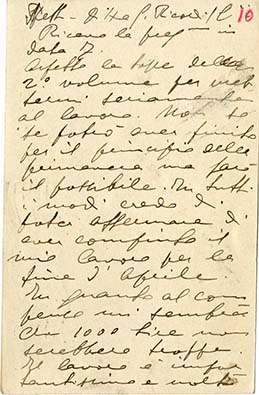 Spett. Ditta G. Ricordi & C. 10
Ricevo la preg. in
data 7.
Aspetto la copia del
2º volume per met
termi seriamente
al lavoro. Non so
se potrò aver finito
per il principio della
primavera ma farò
il possibile. In tutti
i modi credo di
poter affermare di
aver compiuto il
mio lavoro per la
fine d'Aprile
In quanto al com
penso mi sembra
che 1000 lire non
sarebbero troppe.
Il lavoro è impor
tantissimo e molto